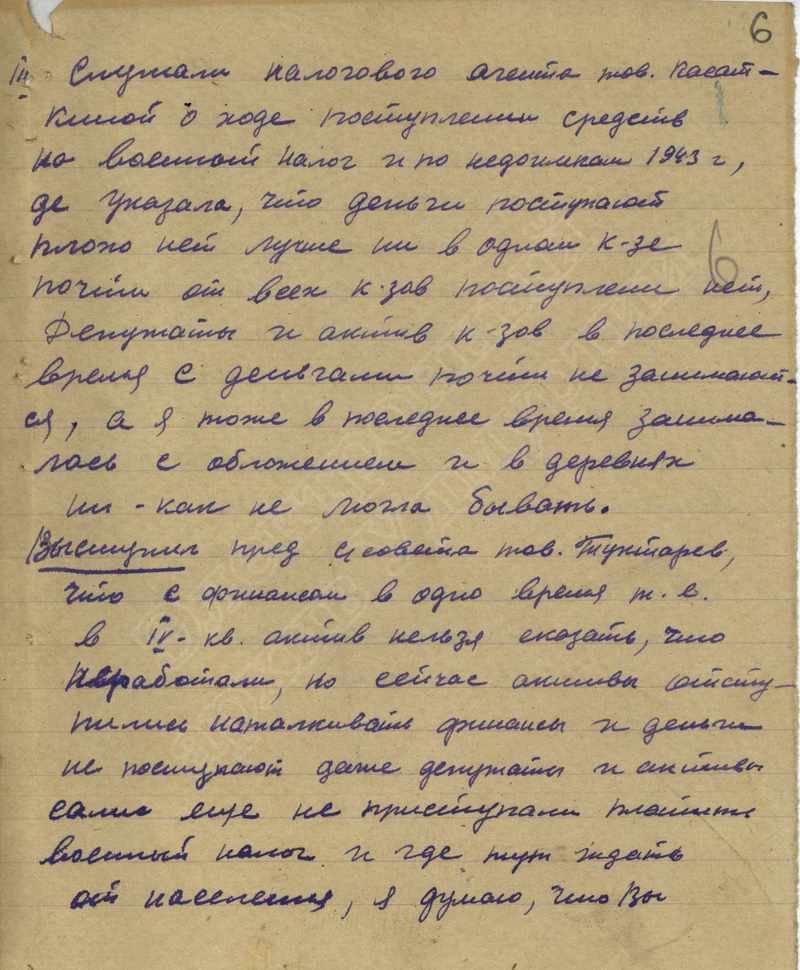 6
III Слушали налогового агента тов. Касат-
киной о ходе поступлении средств
на военный налог и по недоимкам 1943 г,
де указала, что деньги поступают
плохо нет лучше ни в одном к-зе
почти от всех к-зов поступлени нет,
Депутаты и актив к-зов в последнее
время с деньгами почти не занимают-
ся, а я тоже в последнее время занима-
лась с обложением и в деревнях
ни-как не могла бывать.
Выступил пред с/совета тов. Туктарев,
что с финансом в одно время т.е.
в IV-кв. актив нельзя сказать, что
не работали, но сейчас активы отсту-
пились наталкивать финансы и деньги
не поступают даже депутаты и активы
сами еще не приступали платить
военный налог и где тут ждать
от населения, я думаю, что Вы
6